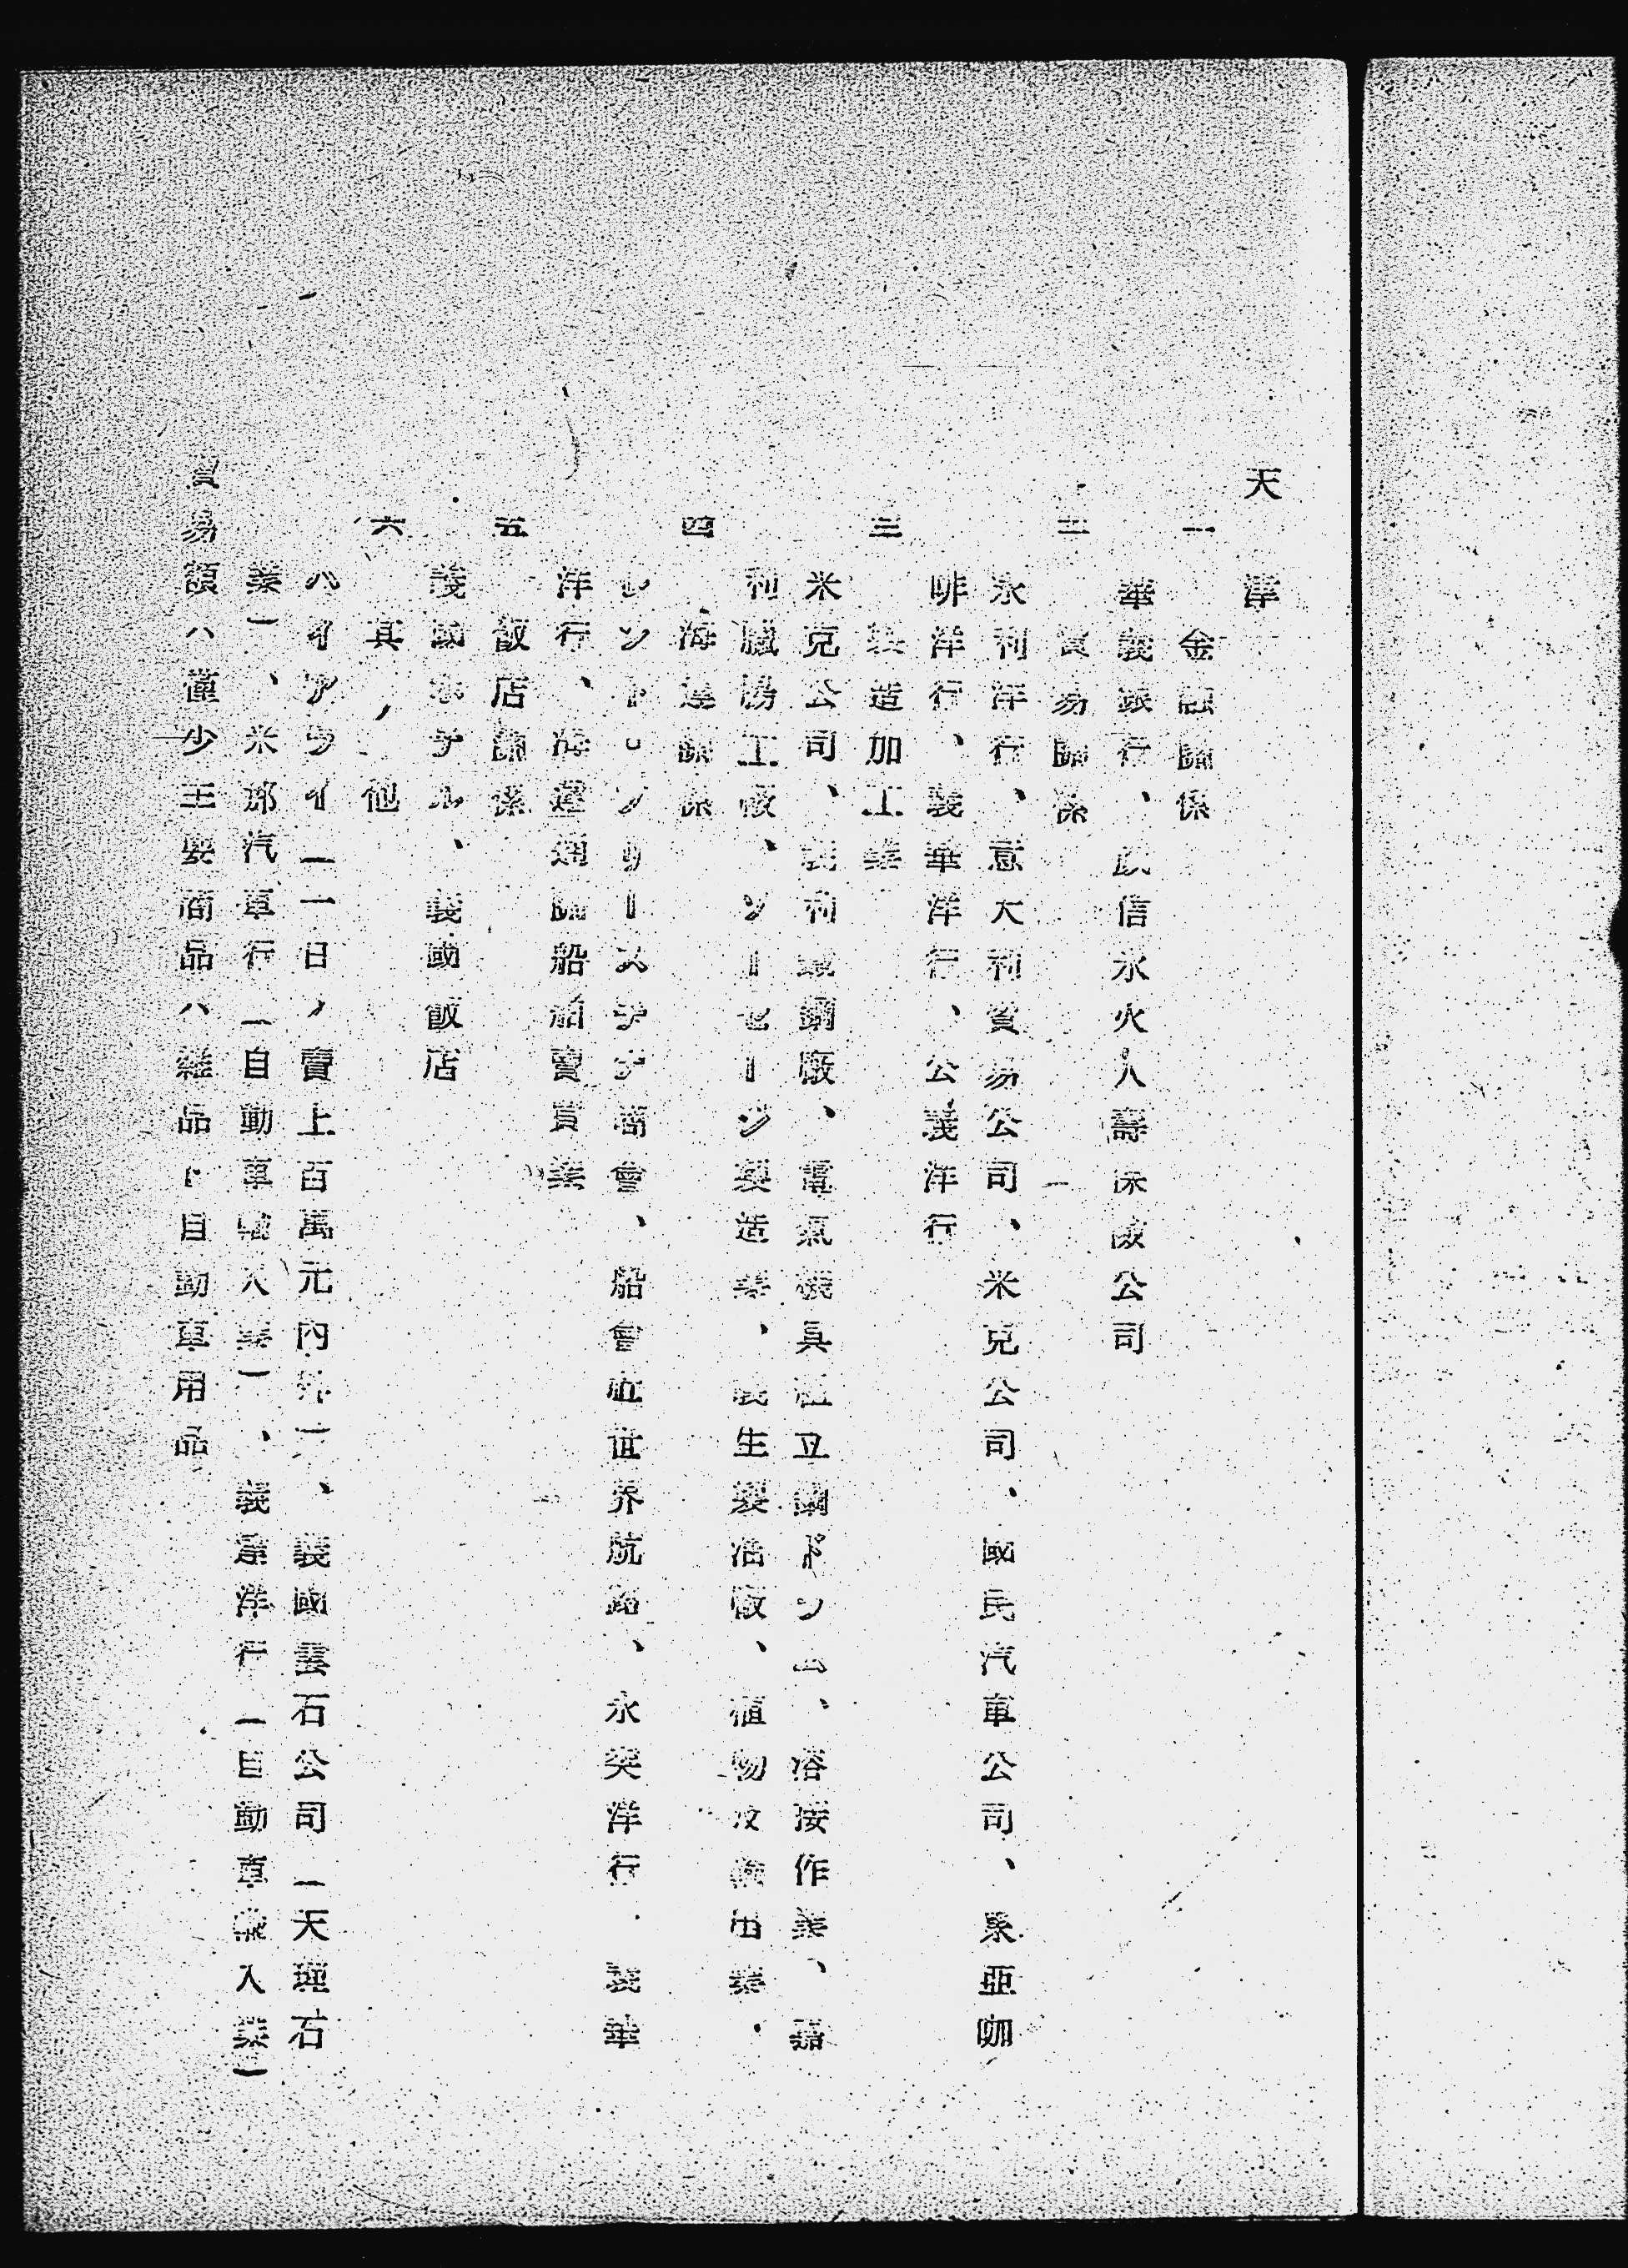 天津
一 金融關係
華義銀行、 信水火人壽保險公司
二 貿易關係
永利洋行、意大利貿易公司、米克公司、國民汽車公司、東亞咖
啡洋行、義華洋行、公義洋行
三 製造加工業
米克公司、 利 鋼廠、電氣機具 立 、熔接作業、
利 協工廠、ソーセージ製造業、義生製 廠、植物 油業、
四 海運關係
レント・ソリーズテデ商會、船會 世界航路、永 洋行、義華
洋行、海運通關船舶賣買業
五 飯店關係
義國ホテル、義國飯店
六 其ノ他
ハイアライ(一日ノ賣上百萬元内外)、義國雲石公司(大理石
業)、米 汽車行(自動車輸入業)、義 洋行(自動車輸入業)
貿易額ハ僅少主要商品ハ雜品ト自動車用品